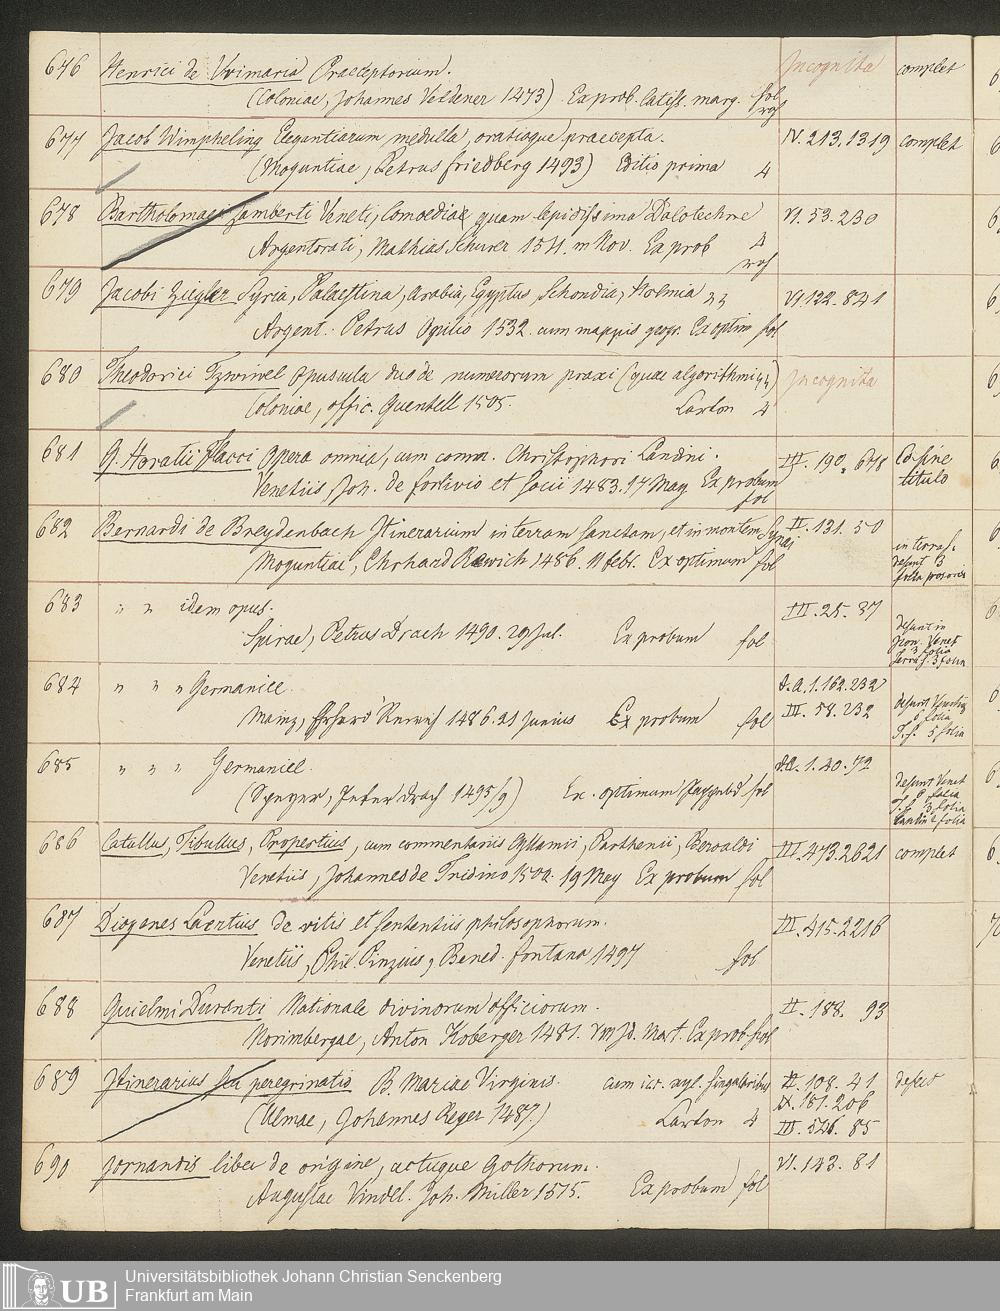 676 Henrici de Vrimaria Praeceptorium. Incognita complet
(Coloniae, Johannes Veldener 1473) Ex prob. latiss. marg. fol
677 Jacob Wimpheling Elegantiarum medulla, oratioque praecepta. IV. 213. 1319 complet
(Moguntiae, Petrus Friedberg 1493) Editio prima 4
678 Bartholomaei Zamberti Veneti, Comoedia quam lepidissima Dolotechne VI. 53. 230
Argentorati, Mathias Schurer 1511. m Nov. Ex prob 4
679 Jacobi Ziegler Syria, Palaestina, Arabia, Egyptus Schondia, Holmia VI 122. 841
Argent. Petrus Opilio 1532. cum mappis geogr. Ex optim fol
680 Theodorici Tzwivel opuscula duo de numerorum praxi (quae algorithmi) Incognita
Coloniae, offic. Quentell 1505. Carton 4
681 Q. Horatii Flacci Opera omnia, cum comm. Christophori Landini. III. 190. 678 Co sine
titulo
Venetiis, Joh. de forlivio et Socii 1483. 17 May Ex probum
fol
682 Bernardi de Breydenbach Itinerarium in terram sanctam, et in montem Synai II. 131. 50
in terra s.
desunt 3
folia
Moguntiae, Erhard Rewich 1486. 11 febr. Ex optimum fol
683 " " idem opus. III. 25. 37
desunt in
Venet
3 folia
Terra s. 3 folia
Spirae, Petrus Drach 1490. 29 Jul. Ex probum fol
684 " " " Germanice. d. A. 1. 162. 232
Mainz, Erhard Rewich 1486. 21 Junius Ex probum fol III. 58. 232
desunt Venetiis
6 folia
T. s. 5 folia
685 " " " Germanice. d. A. 1. 40. 72
(Speyer, Peter Drach 1495/9) Ex. optimum fol
desunt Venet
6 folia
T. s. 3 folia
2 folia
686 Catullus, Tibullus, Propertius, cum commentariis Cyllanii, Parthenii, Beroaldi III. 473. 2621 complet
Venetiis, Johannes de Tridino 1500. 19 May Ex probum fol
687 Diogenes Laertius de vitis et sententiis philosophorum. III. 415. 2216
Venetiis, Phil. Pinzius, Bened. fontana 1497 fol
688 Guielmi Duranti Rationale divinorum officiorum. II. 188. 93
Norimbergae, Anton Koberger 1481. VIII Id. Mart. Ex prob. fol
689 Itinerarius seu peregrinatio B. Mariae Virginis. cum icc. xyl. singularibus II. 108. 41 defect
IX. 181. 206
(Ulmae, Johannes Reger 1487.) Carton 4 III. 546. 85
690 Jornandis liber de origine, actuque Gothorum. VI. 143. 81
Augustae Vindel. Joh. Miller 1515. Ex probum fol
UB Universitätsbibliothek Johann Christian Senckenberg
Frankfurt am Main